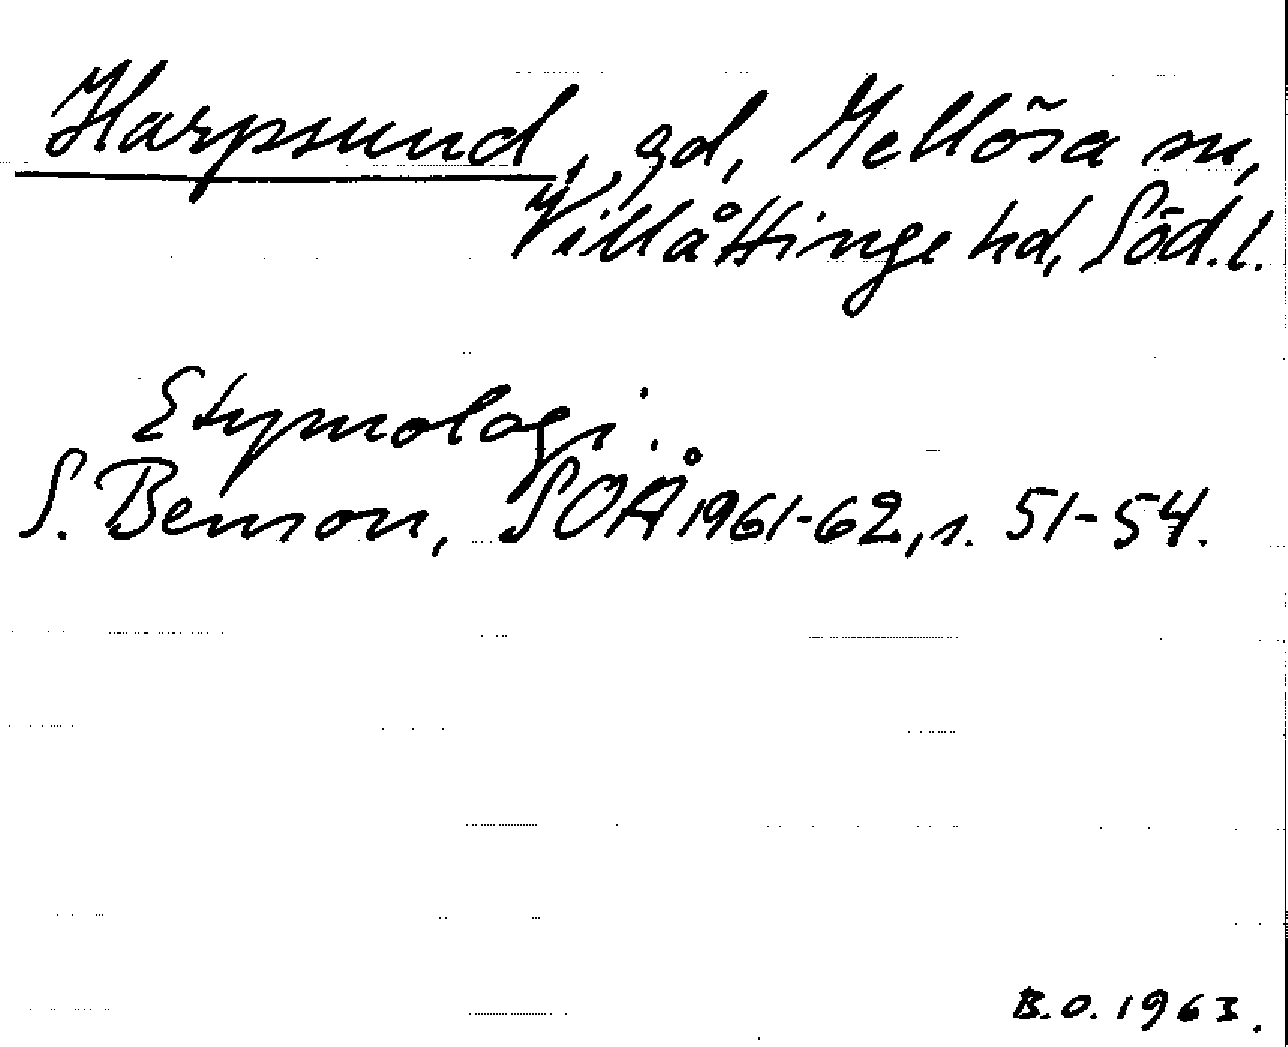 Harpsund, gd, Mellösa sn,
Villåttinge hd, Söd. l.
Etymologi:
S. Benson, SOÅ 1961-62, s. 51-54.
B.O. 1963.